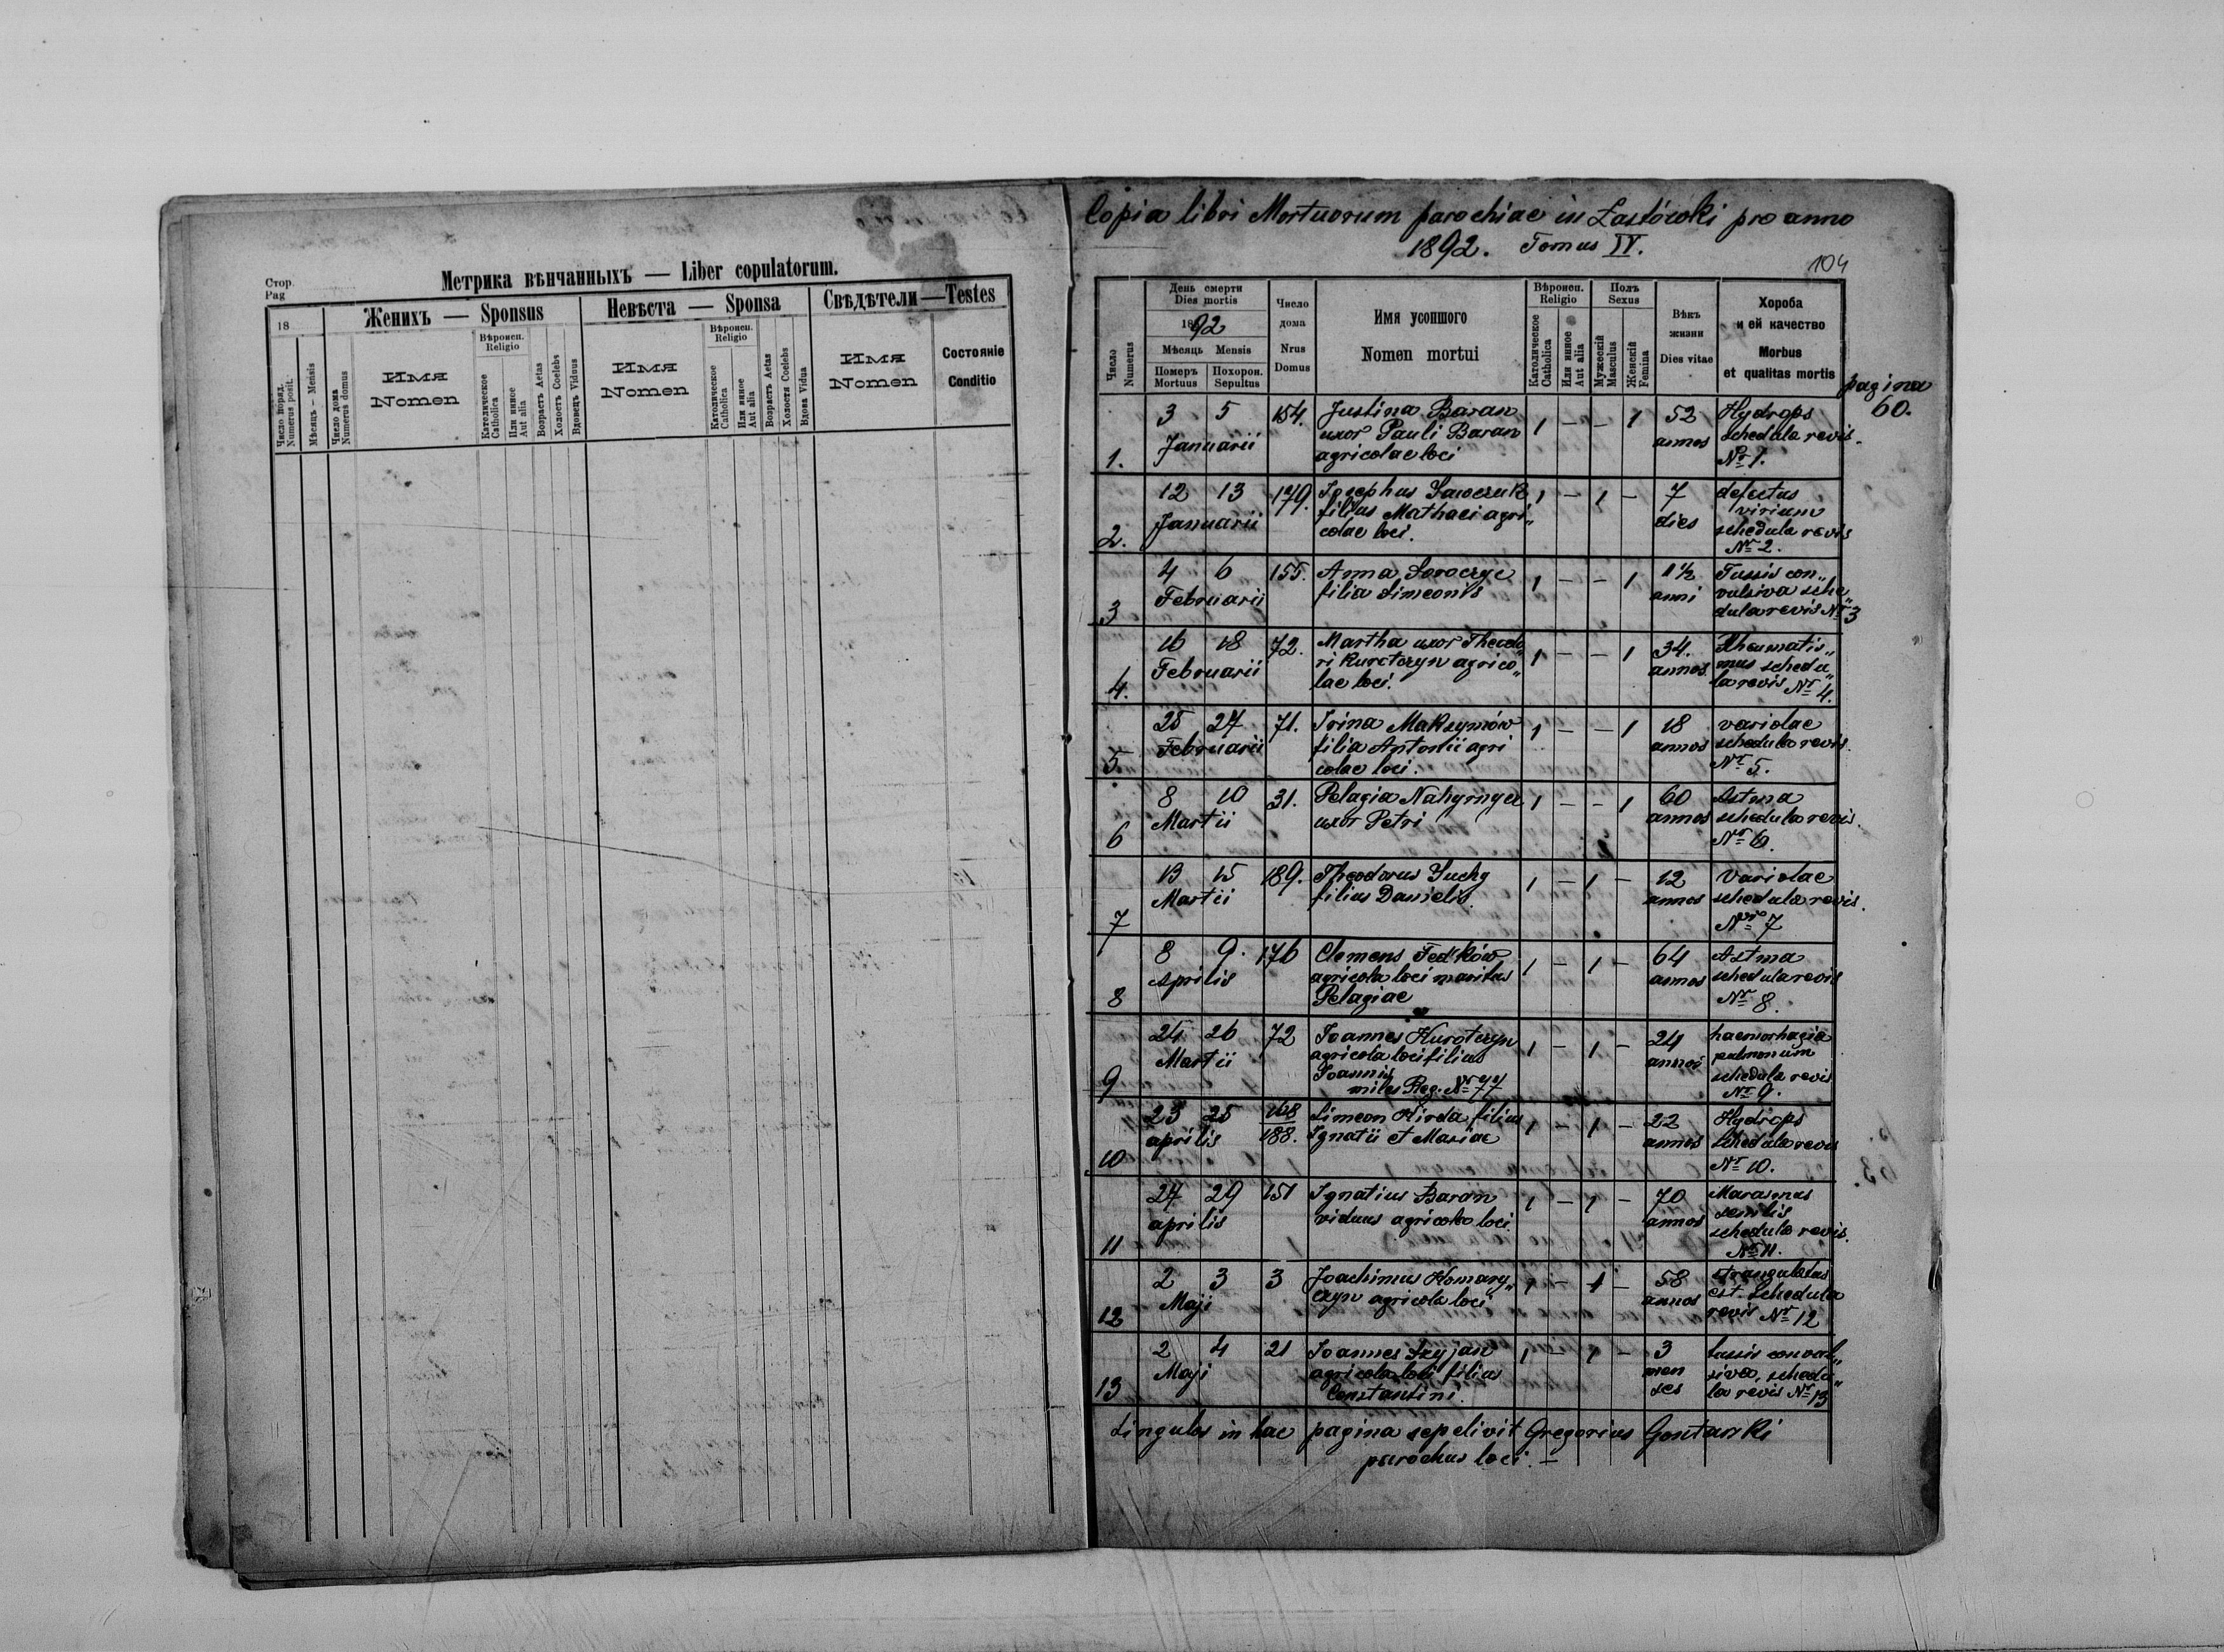 Стор.
Pag
Метрика вѣнчанныхъ — Liber copulatorum.
18
Женихъ — Sponsus
Невѣста — Sponsa
Свѣдѣтели — Testes
Число поряд.
Numerus posit.
Мѣсяць — Mensis
Число дома
Numerus domus
Имя
Nomen
Вѣроисп.
Religio
Католическое
Catholica
Или инное
Aut alia
Возрастъ Aetas
Холостъ Coelebs
Вдовецъ Viduus
Имя
Nomen
Вѣроисп.
Religio
Католическое
Catholica
Или инное
Aut alia
Возрастъ Aetas
Холостя Coelebs
Вдова Vidua
Имя
Nomen
Состояніе
Conditio
Copia libri Mortuorum parochiae in Łastówki pro anno
1892. Tomus IV.
104
Число
Numerus
День смерти
Dies mortis
1892
Мѣсяць Mensis
Померъ
Mortuus
Похорон.
Sepultus
Число
дома
Nrus
Domus
Имя усопшого
Nomen mortui
Вѣроисп.
Religio
Католическое
Catholica
Или инное
Aut alia
Полъ
Sexus
Мужескій
Masculus
Женскій
Femina
Вѣкъ
жизни
Dies vitae
Хороба
и ей качество
Morbus
et qualitas mortis
pagina
60.
3 5 154. Justina Baran 1 – – 1 52 Hydrops
Januarii uxor Pauli Baran annos schedula revis.
1. agricolae loci Nr 1.
12 13 179. Josephus Sawczuk 1 – 1 – 7 defectus
Januarii filius Mathaei agri„ dies virium
2. colae loci. schedula revis
Nr 2.
4 6 155. Anna 1 – – 1 1½ Tussis con„
Februarii filia Simeonis anni vulsiva sche„
3 dula revis Nr 3
16 18 72. Martha uxor Theodo„ 1 – – 1 34. Rheumatis„
Februarii ri Kurotczyn agrico„ annos mus schedu„
4. lae loci. la revis Nr 4.
25 27 71. Irina Maksymów 1 – – 1 18 variolae
Februarii filia Antonii agri annos schedula revis.
5. colae loci. Nr 5.
8 10 31. Pelagia 1 – – 1 60 Astma
Martii uxor Petri annos schedula revis.
6 Nr 6.
13 15 189. Theodorus Suchy 1 – 1 – 12 Variolae
Martii filius Danielis. annos schedula revis.
7 Nr 7
8 9. 176 Clemens Fed'ków 1 – 1 – 64 Astma
Aprilis agricola loci maritus annos schedula revis
8 Pelagiae Nr 8.
24 26 72 Joannes Kurotczyn 1 – 1 – 24 haemorhagia
Martii agricola loci filius annos pulmonum
9 Joannis schedula revis
miles Reg. Nr 77 Nr 9.
23 25 168 Simeon Hirda filius 1 – 1 – 22 Hydrops
aprilis 188. Ignatii et Mariae annos schedula revis
10 Nr 10.
27 29 151 Ignatius Baran 1 – 1 – 70 Marasmus
aprilis viduus agricola loci. annos senilis
schedula revis.
11 Nr 11.
2 3 3 Joachimus Komary„ 1 – 1 – 58 strangulatus
Maji czyn agricola loci annos est. Schedula
12 revis Nr 12
2 4 21 Joannes Szyjan 1 – 1 – 3 tussis convul„
Maji agricola loci filius men siva, schedu„
13 Constantini. ses la revis Nr 13
Singulos in hac pagina sepelivit Gregorius Gontarski
parochus loci. –